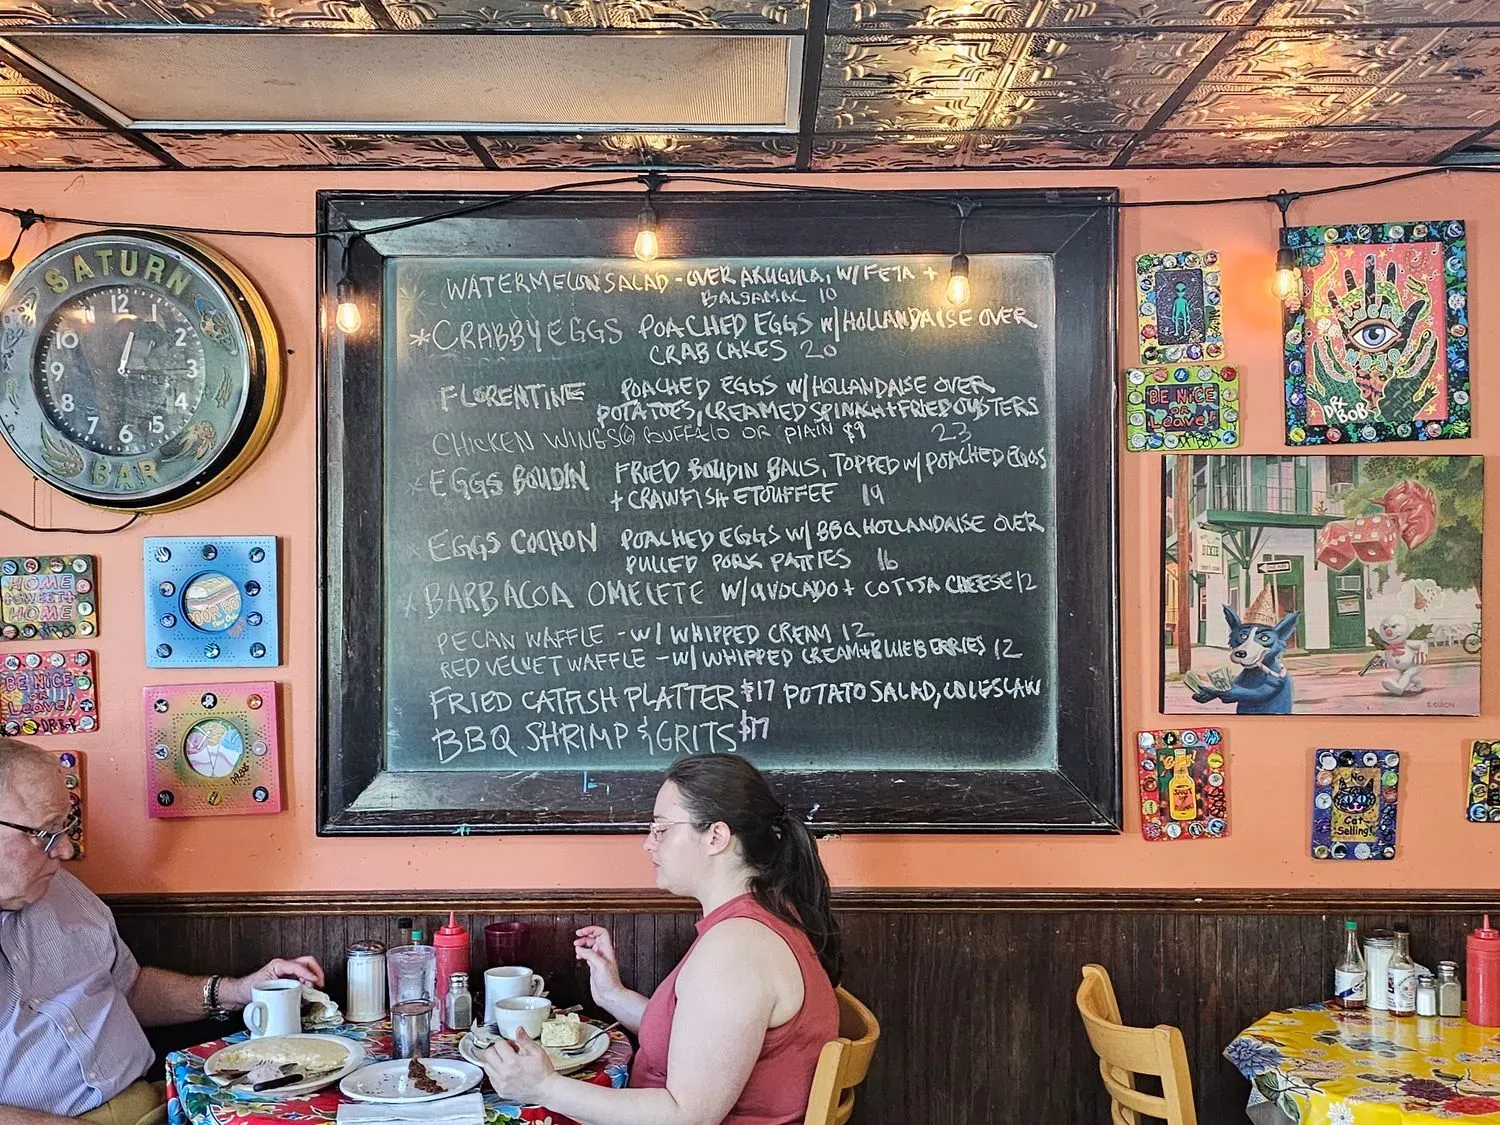 SATURN
BAR
12
1
2
3
4
5
6
7
8
9
10
WATERMELON SALAD - OVER ARUGULA, W/ FETA +
BALSAMIC 10
*CRABBY EGGS POACHED EGGS W/HOLLANDAISE OVER
CRAB CAKES 20
FLORENTINE POACHED EGGS W/HOLLANDAISE OVER
POTATOES, CREAMED SPINACH + FRIED OYSTERS
CHICKEN WINGS BUFFALO OR PLAIN $9 23
*EGGS BOUDIN FRIED BOUDIN BALLS, TOPPED W/ POACHED EGGS
+ CRAWFISH ETOUFFEE 19
*EGGS COCHON POACHED EGGS W/ BBQ HOLLANDAISE OVER
PULLED PORK PATTIES 16
*BARBACOA OMELETE W/ AVOCADO + COTIJA CHEESE 12
PECAN WAFFLE - W/ WHIPPED CREAM 12
RED VELVET WAFFLE - W/ WHIPPED CREAM + BLUEBERRIES 12
FRIED CATFISH PLATTER $17 POTATO SALAD, COLESLAW
BBQ SHRIMP & GRITS $17
HOME
SWEET
HOME
BE NICE
OR
Leave!
DR BOB
DR.BOB
BE NICE
OR
Leave!
DR BOB
LUCKY
MOJO
DR.
BOB
DIXIE
S. GUION
SHUT
UP
No
Cat
Selling!